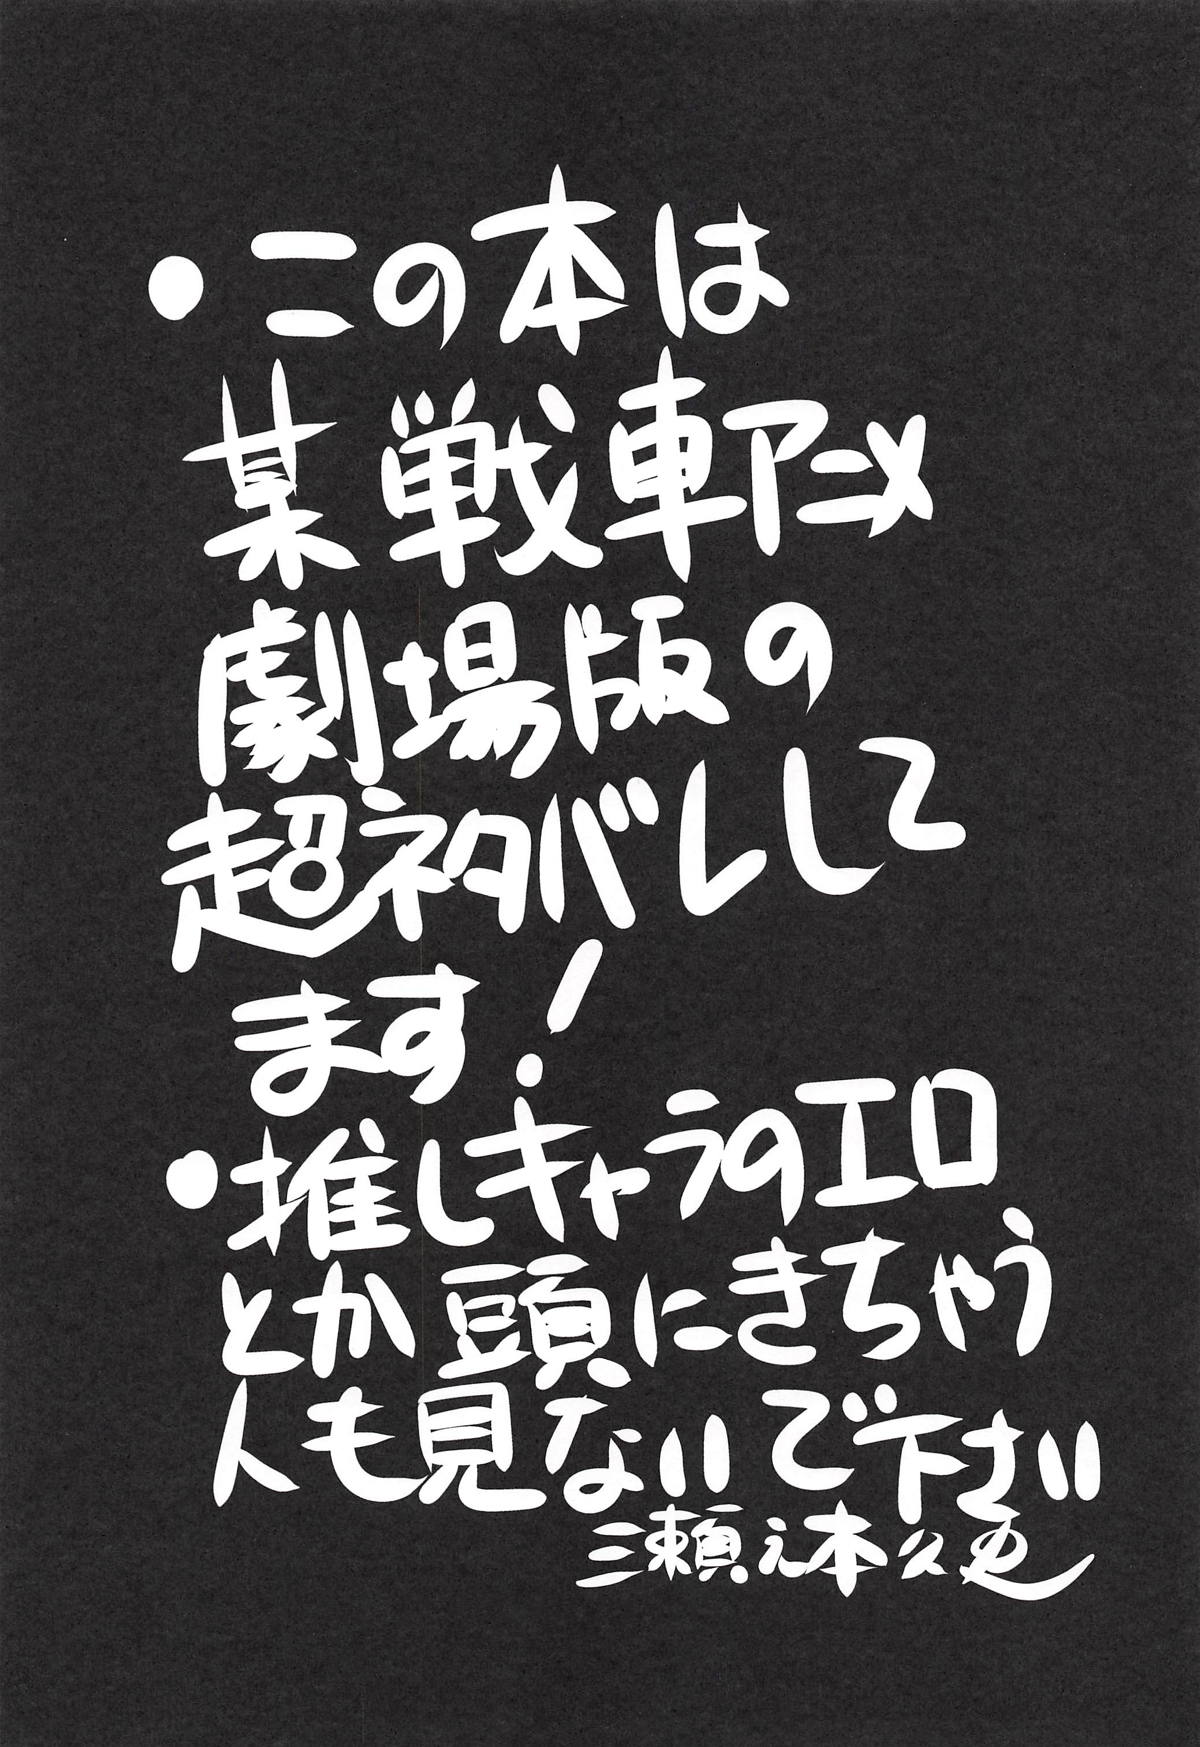 ・この本は
某戦車アニメ
劇場版の
超ネタバレして
ます!
・推しキャラのエロ
とか頭にきちゃう
人も見ないで下さい
三瀬元本久史